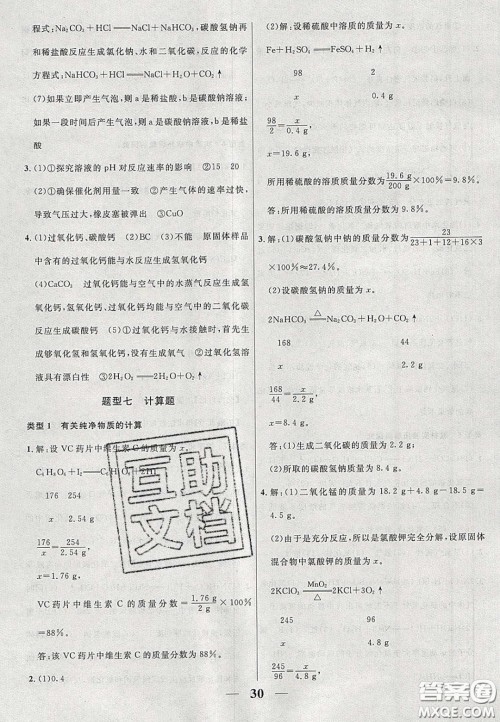 程式:Na₂CO₃+HCl══NaCl+NaHCO₃,碳酸氢钠再
和稀盐酸反应生成氯化钠、水和二氧化碳,反应的化学
方程式:NaHCO₃+HCl══NaCl+H₂O+CO₂↑
(7)如果立即产生气泡,则a是稀盐酸,b是碳酸钠溶液;
如果一段时间后产生气泡,则a是碳酸钠溶液,b是稀盐
酸
3.(1)①探究溶液的pH对反应速率的影响 ②15 20
(2)①确保催化剂用量一致 ②产生气体的速率过快,
导致气压过大,橡皮塞被弹出 ③CuO
4.(1)过氧化钙、碳酸钙 (2)BC (3)不能 原固体样品
中含有的过氧化钙能与水反应生成氢氧化钙
(4)CaCO₃ 过氧化钙能与空气中的水蒸气反应生成氢
氧化钙,氢氧化钙、过氧化钙均能与空气中的二氧化碳
反应生成碳酸钙 (5)①过氧化钙与水接触时,首先生
成够氧化氢和氢氧化钙,没有生成氧气 ②过氧化氢溶
液具有漂白性 ③2H₂O₂══2H₂O+O₂↑
题型七 计算题
类型1 有关纯净物质的计算
1.解:设VC药片中维生素C的质量为x。
C₆H₈O₆+I₂══C₆H₆O₆+2HI
176 254
x 2.54 g
176/254=x/2.54 g,
x=1.76 g。
VC药片中维生素C的质量分数为1.76 g/2 g×100%
=88%。
答:该VC药片中维生素C的质量分数为88%。
2.(1)0.4
(2)解:设稀硫酸中的溶质的质量为x。
Fe+H₂SO₄══FeSO₄+H₂↑
98 2
x 0.4 g
98/2=x/0.4 g,
x=19.6 g。
所用稀硫酸的溶质质量分数为19.6 g/200 g×100%=9.8%。
答:所用稀硫酸的溶质的质量分数为9.8%。
3.解:(1)碳酸氢钠中钠的质量分数为23/23+1+12+16×3
×100%≈27.4%。
(2)设碳酸氢钠的质量为x。
2NaHCO₃══△Na₂CO₃+H₂O+CO₂↑
168 44
x 2.2 g
168/44=x/2.2 g,
x=8.4 g。
答:(1)生成二氧化碳的质量为2.2 g。
(2)所取的碳酸氢钠质量为8.4 g。
4.解:(1)二氧化锰的质量为18.2 g+4.8 g-18.5 g=
4.5 g。
(2)由于是充分反应,所以氯酸钾完全分解,设原固体
混合物中氯酸钾的质量为x。
2KClO₃══MnO₂/△2KCl+3O₂↑
245 96
x 4.8 g
245/96=x/4.8 g,
x=12.25 g。
30
互助
文档
答案圈
MXQE.COM